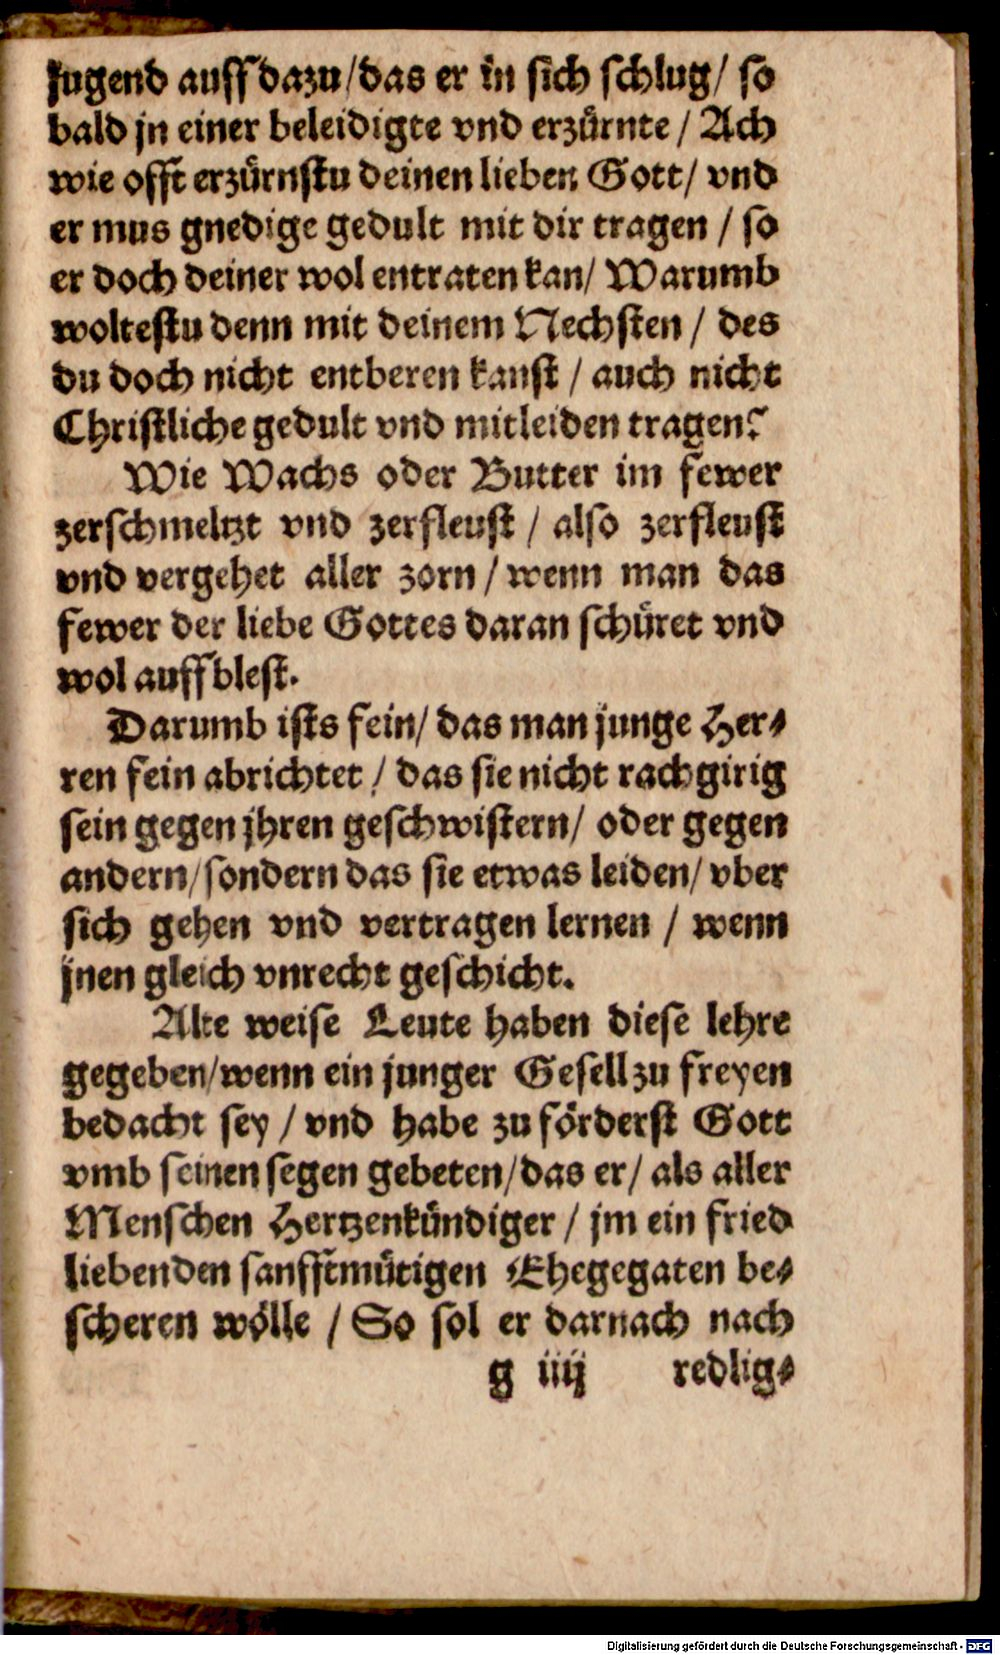 Jugend auff dazu/das er in sich schlug/ so
bald jn einer beleidigte vnd erzürnte / Ach
wie offt erzürnstu deinen lieben Gott/ vnd
er mus gnedige gedult mit dir tragen / so
er doch deiner wol entraten kan/ Warumb
woltestu denn mit deinem Nechsten / des
du doch nicht entberen kanst / auch nicht
Christliche gedult vnd mitleiden tragen?
Wie Wachs oder Butter im fewer
zerschmeltzt vnd zerfleust / also zerfleust
vnd vergehet aller zorn / wenn man das
fewer der liebe Gottes daran schüret vnd
wol auffblest.
Darumb ists fein/ das man junge Her-
ren fein abrichtet / das sie nicht rachgirig
sein gegen jhren geschwistern/ oder gegen
andern/sondern das sie etwas leiden/ vber
sich gehen vnd vertragen lernen / wenn
jnen gleich vnrecht geschicht.
Alte weise Leute haben diese lehre
gegeben/wenn ein junger Gesell zu freyen
bedacht sey / vnd habe zu förderst Gott
vmb seinen segen gebeten/das er/ als aller
Menschen Hertzenkündiger / jm ein fried
liebenden sanfftmütigen Ehegegaten be-
scheren wölle / So sol er darnach nach
g iiij redlig-
Digitalisierung gefördert durch die Deutsche Forschungsgemeinschaft - DFG